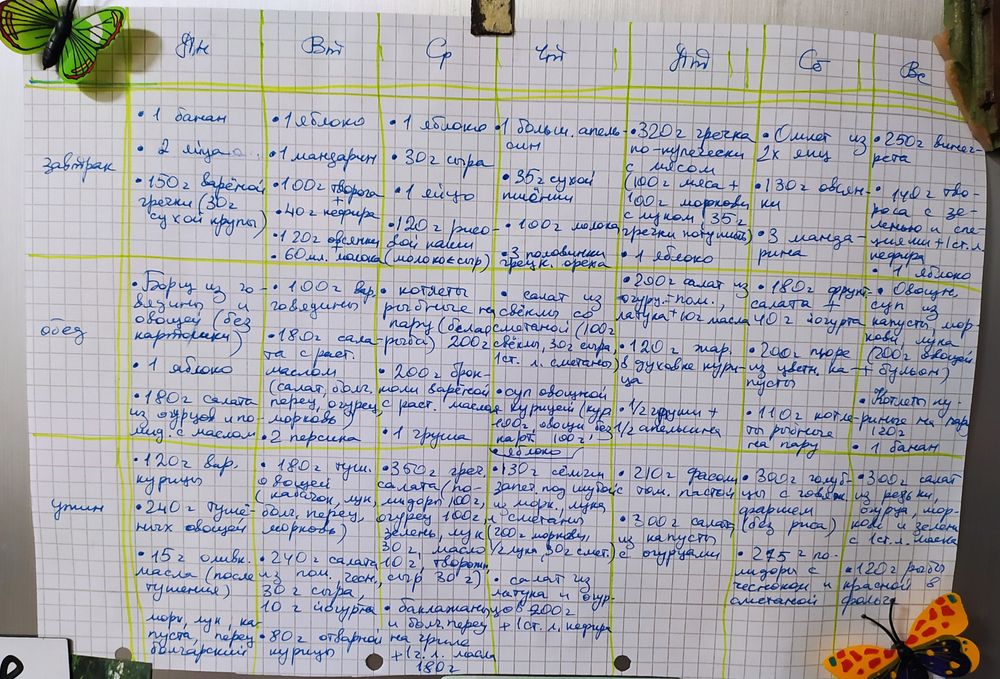 Пн
Вт
Ср
Чт
Пт
Сб
Вс
завтрак
• 1 банан
• 2 яйца
• 150г варёной
гречки (30г
сухой крупы)
• 1 яблоко
• 1 мандарин
• 100г творога
+
• 40г кефира
• 120г овсянки
+
60мл. молока
• 1 яблоко
• 30г сыра
• 1 яйцо
• 120г рисо-
вой каши
(молоко+сыр)
• 1 больш. апель-
син
• 35г сухой
пшёнки
• 100г молока
• 3 половинки
грецк. ореха
• 320г гречка
по-купечески
с мясом
(100г мяса +
100г моркови
с луком, 35г
гречки потушить)
• 1 яблоко
• Омлет из
2х яиц
• 130г овсян-
ки
• 3 манда-
рина
• 250г вине-
грета
• 140г тво-
рога с зе-
ленью и спе-
циями + 1ст.л.
кефира
• 1 яблоко
обед
• Борщ из го-
вядины и
овощей (без
картошки)
• 1 яблоко
• 180г салата
из огурцов и по-
мид. с маслом
• 100г вар.
говядины
• 180г сала-
та с раст.
маслом
(салат, болг.
перец, огурец,
морковь)
• 2 персика
• котлеты
рыбные на
пару (белая
рыба) 200г
• 200г брок-
коли варёной
с раст. маслом
• 1 груша
• салат из
свёклы со
сметаной (100г
свёклы, 30г сыра,
1ст. л. сметаны)
• суп овощной
с курицей (кур.
100г, овощи без
карт. 100г)
• яблоко
• 200г салат из
огур.+пом.,
латука+10г масла
• 120г жар.
в духовке кури-
ца
• 1/2 груши +
1/2 апельсина
• 180г фрукт.
салата +
40г йогурта
• 200г пюре
из цветн. ка-
пусты
• 110г котле-
ты рыбные
на пару
• Овощн.
суп из
капусты, мор-
кови, лука
(200г овощей
+ бульон)
• Котлеты ку-
риные на пару
120г
• 1 банан
ужин
• 120г вар.
курицы
• 240г тушё-
ных овощей
• 15г оливк.
масла (после
тушения)
морк, лук, ка-
пуста, перец
болгарский
• 180г туш.
овощей
(кабачок, лук,
болг. перец,
морковь)
• 240г салата
из пом., чесн.,
30г сыра,
10г йогурта
• 80г отварной
курицы
• 350г греч.
салата (по-
мидоры 100г,
огурец 100г,
зелень, лук
30г, масло
10г, творожн.
сыр 30г)
• баклажаны
и болг. перец
на гриле
+ 1ч. л. масла
180г
• 130г сёмги
запеч. под шубой
из морк., лука
и сметаны
(200г моркови,
1/2 лука, 30г смет.)
• салат из
латука и огур-
цов 200г
+ 1ст. л. кефира
• 210г фасоли
с том. пастой
• 300г салата
из капусты
с огурцами
• 300г голуб-
цы с говяж.
фаршем
(без риса)
• 275г по-
мидоры с
чесноком и
сметаной
• 300г салат
из редьки,
огурца, мор-
кови и зелени
с 1ст. л. масла
• 120г рыбы
красной в
фольге